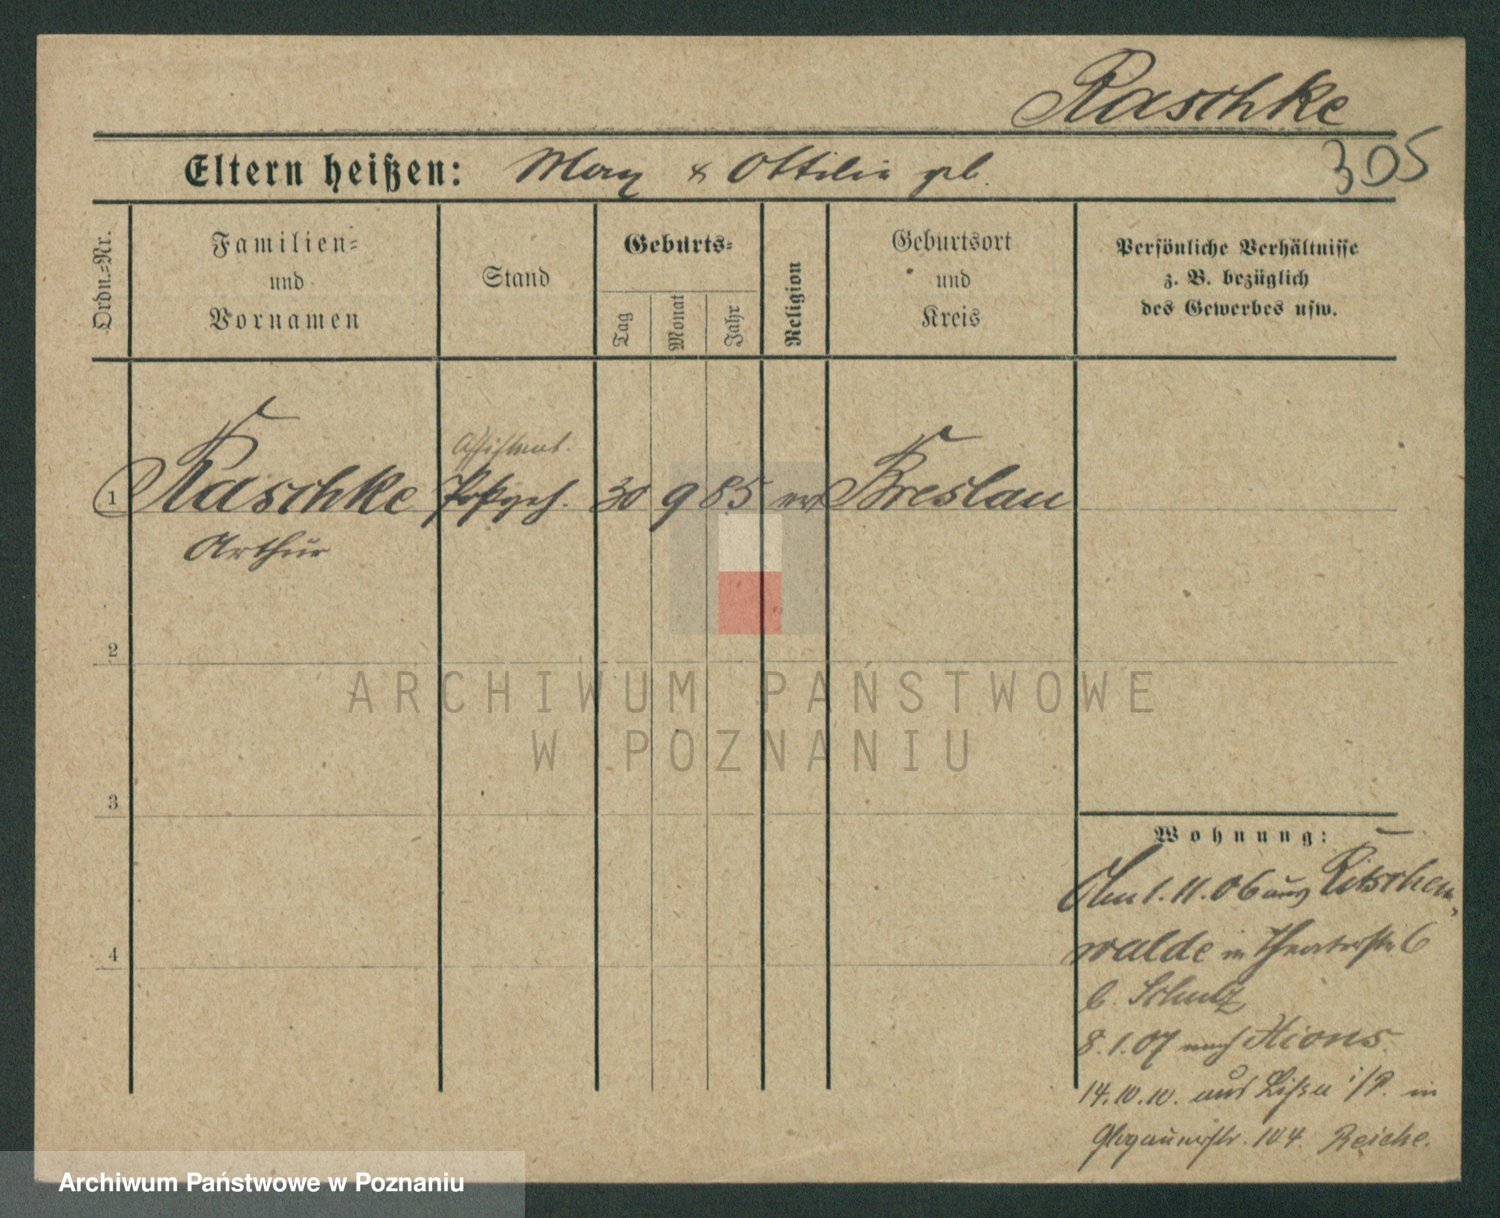 Raschke
305
Eltern heißen: Max & Ottilie geb.
Ordn.=Nr.
Familien=
und
Vornamen
Stand
Geburts=
Tag
Monat
Jahr
Religion
Geburtsort
und
Kreis
Persönliche Verhältnisse
z. B. bezüglich
des Gewerbes usw.
Assistent.
1 Raschke Postgeh. 30 9 85 ev Breslau
Arthur
2
3
4
Wohnung:
Am 1.11.06 aus Ritschen-
walde in Theaterstr 6
b. Schulz
8.1.07 nach Xions.
14.10.10. aus Lissa i/P. in
Glogauerstr. 104. Reiche.
ARCHIWUM PAŃSTWOWE
W POZNANIU
Archiwum Państwowe w Poznaniu